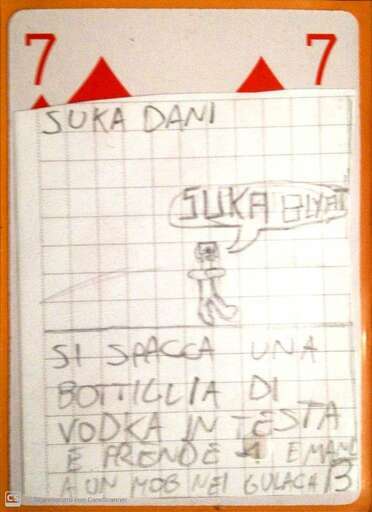 7 7
SUKA DANI
SUKA BLYAT
SI SPACCA UNA
BOTTILLIA DI
VODKA IN TESTA
E PRENDE 1 E MAND
A UN MOB NEI GULAG
Scansionato con CamScanner